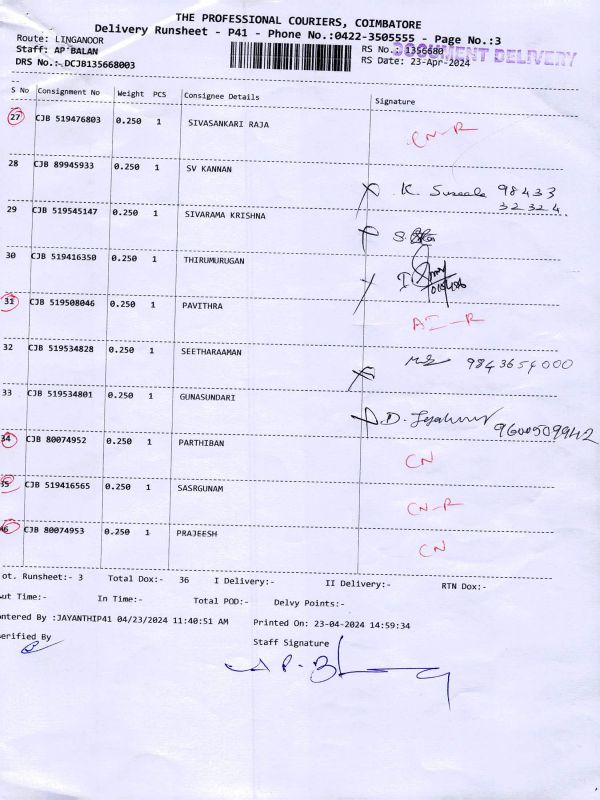 THE PROFESSIONAL COURIERS, COIMBATORE
Delivery Runsheet - P41 - Phone No.:0422-3505555 - Page No.:3
Route: LINGANOOR
RS No.: 1356680
DOCUMENT DELIVERY
Staff: AP BALAN
RS Date: 23-Apr-2024
DRS No.: DCJB135668003
S No Consignment No Weight PCS Consignee Details Signature
27 CJB 519476803 0.250 1 SIVASANKARI RAJA CN-R
28 CJB 89945933 0.250 1 SV KANNAN K. 98433
32324
29 CJB 519545147 0.250 1 SIVARAMA KRISHNA
30 CJB 519416350 0.250 1 THIRUMURUGAN
31 CJB 519508046 0.250 1 PAVITHRA AI-R
32 CJB 519534828 0.250 1 SEETHARAAMAN 9843654000
33 CJB 519534801 0.250 1 GUNASUNDARI D. 9600509942
34 CJB 80074952 0.250 1 PARTHIBAN CN
35 CJB 519416565 0.250 1 SASRGUNAM CN-R
36 CJB 80074953 0.250 1 PRAJEESH CN
ot. Runsheet:- 3 Total Dox:- 36 I Delivery:- II Delivery:- RTN Dox:-
ut Time:- In Time:- Total POD:- Delvy Points:-
ntered By :JAYANTHIP41 04/23/2024 11:40:51 AM Printed On: 23-04-2024 14:59:34
erified By Staff Signature